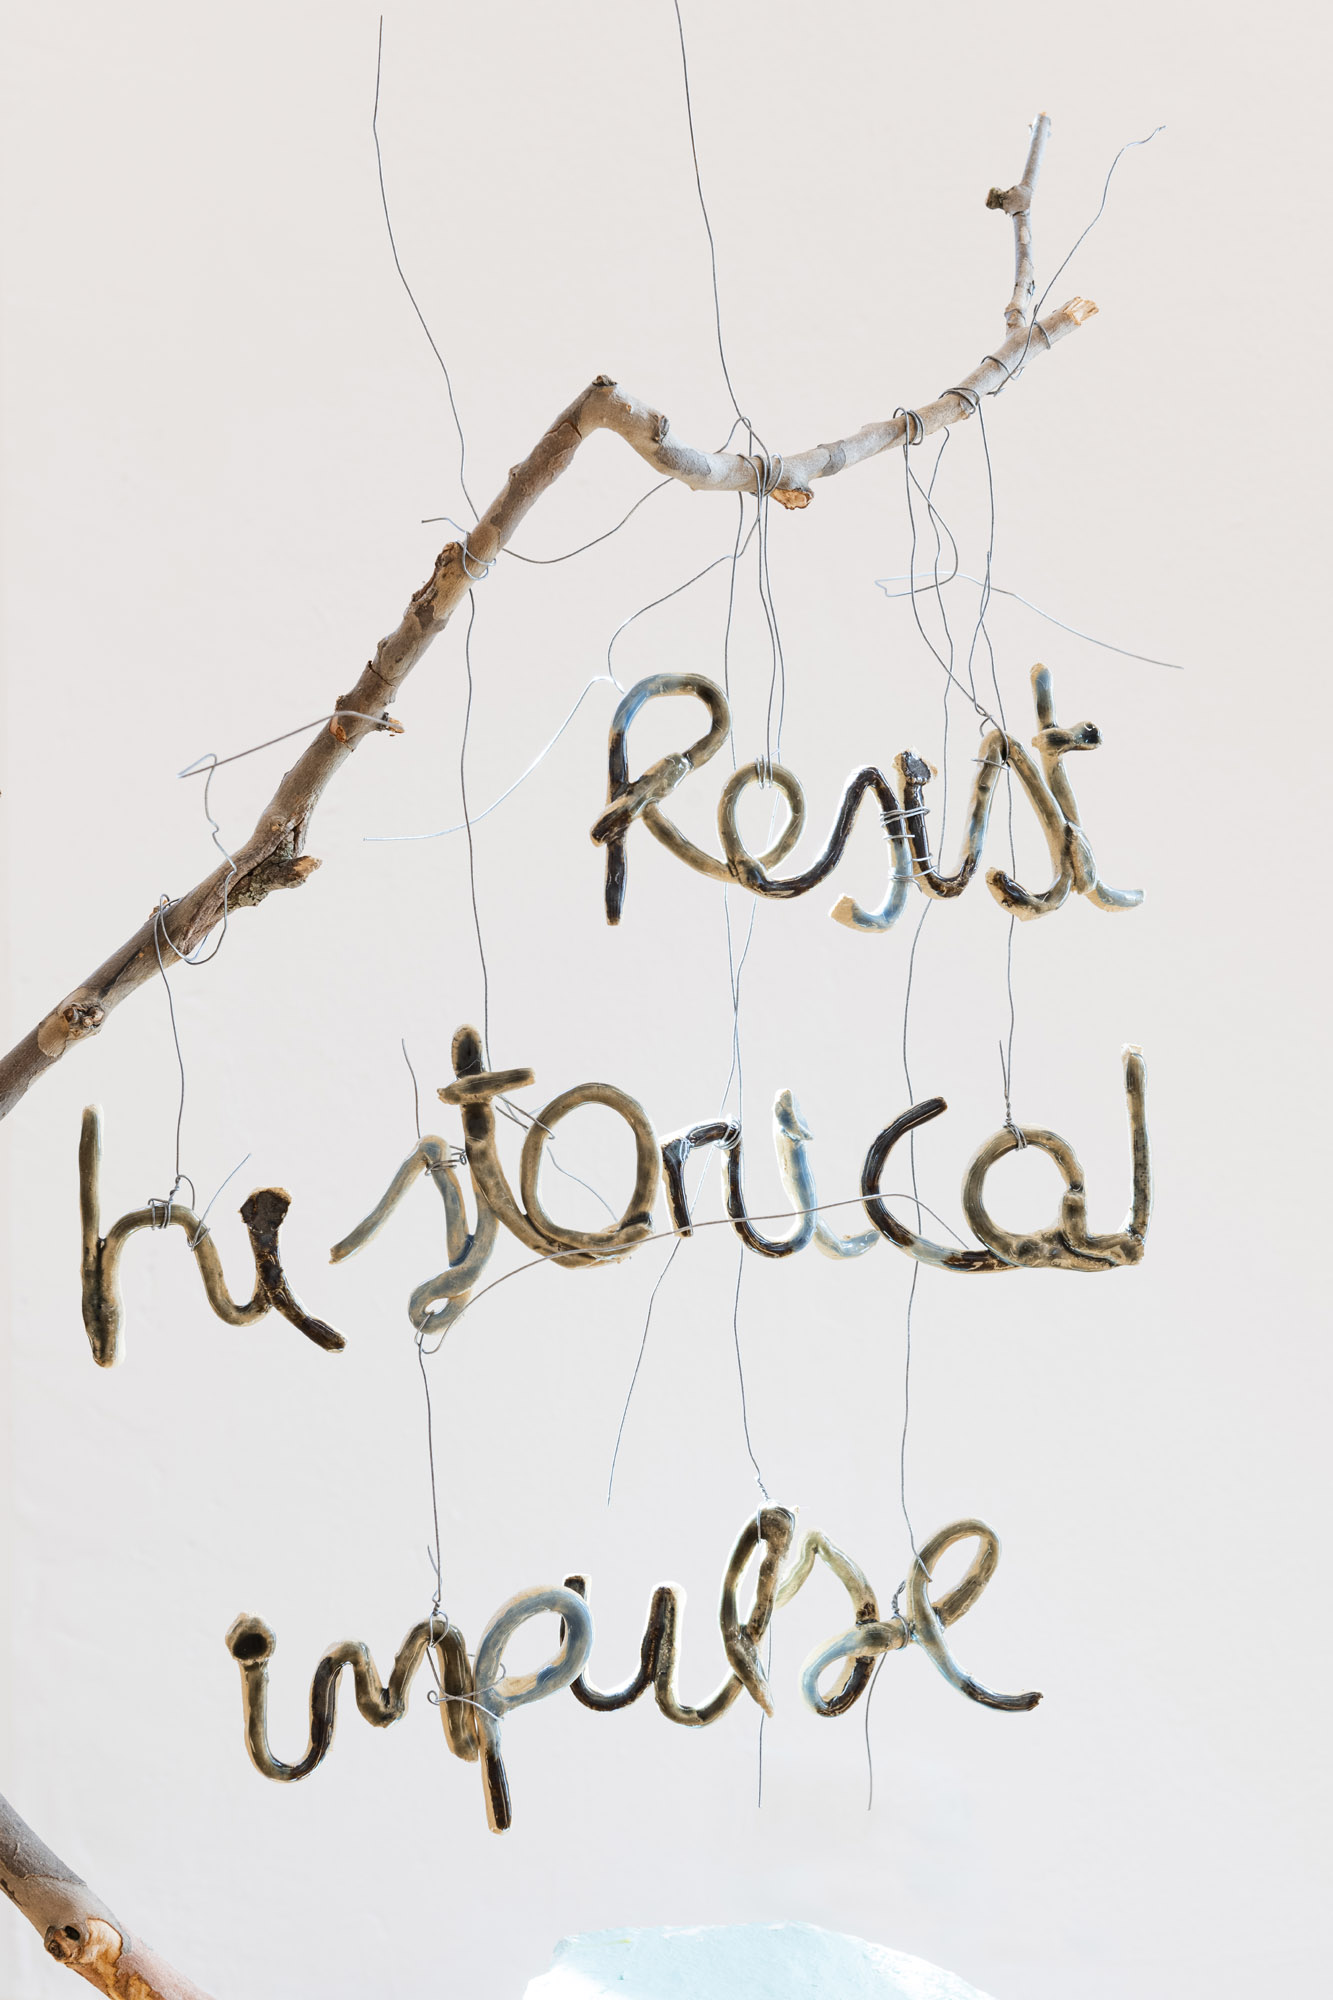 Resist
historical
impulse